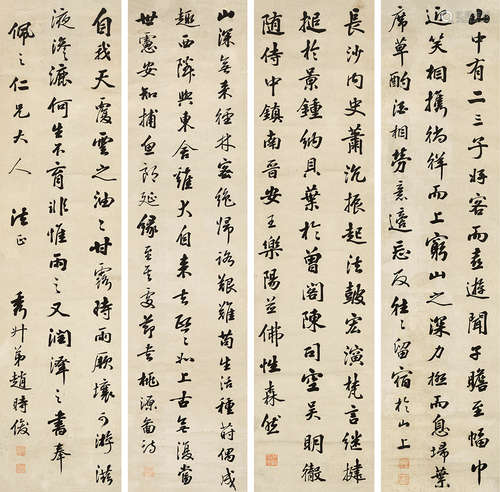 山中有二三子好客而喜遊聞子瞻至幅巾
迎笑相攜徜徉而上窮山之深力極而息掃葉
席草酌酒相勞意適忘反往々留宿於山上
長沙內史蕭沇振起法鼓宏演梵言繼
搥於景鍾納貝葉於曾閣陳司空吳明徹
隨侍中鎮南晉安王樂陽並佛性森然
山深無來徑林密絕歸路艱難苟生活種蒔偶成
趣西隣與東舍雞犬自來去熙々如上古無復當
世慮安知捕魚郎延緣至其處節書桃源圖詩
自我天覆雲之油々甘露時雨厥壤可游滋
液滲漉何生不育非惟雨之又潤澤之書奉
佩之仁兄大人 法正 秀升弟趙時俊